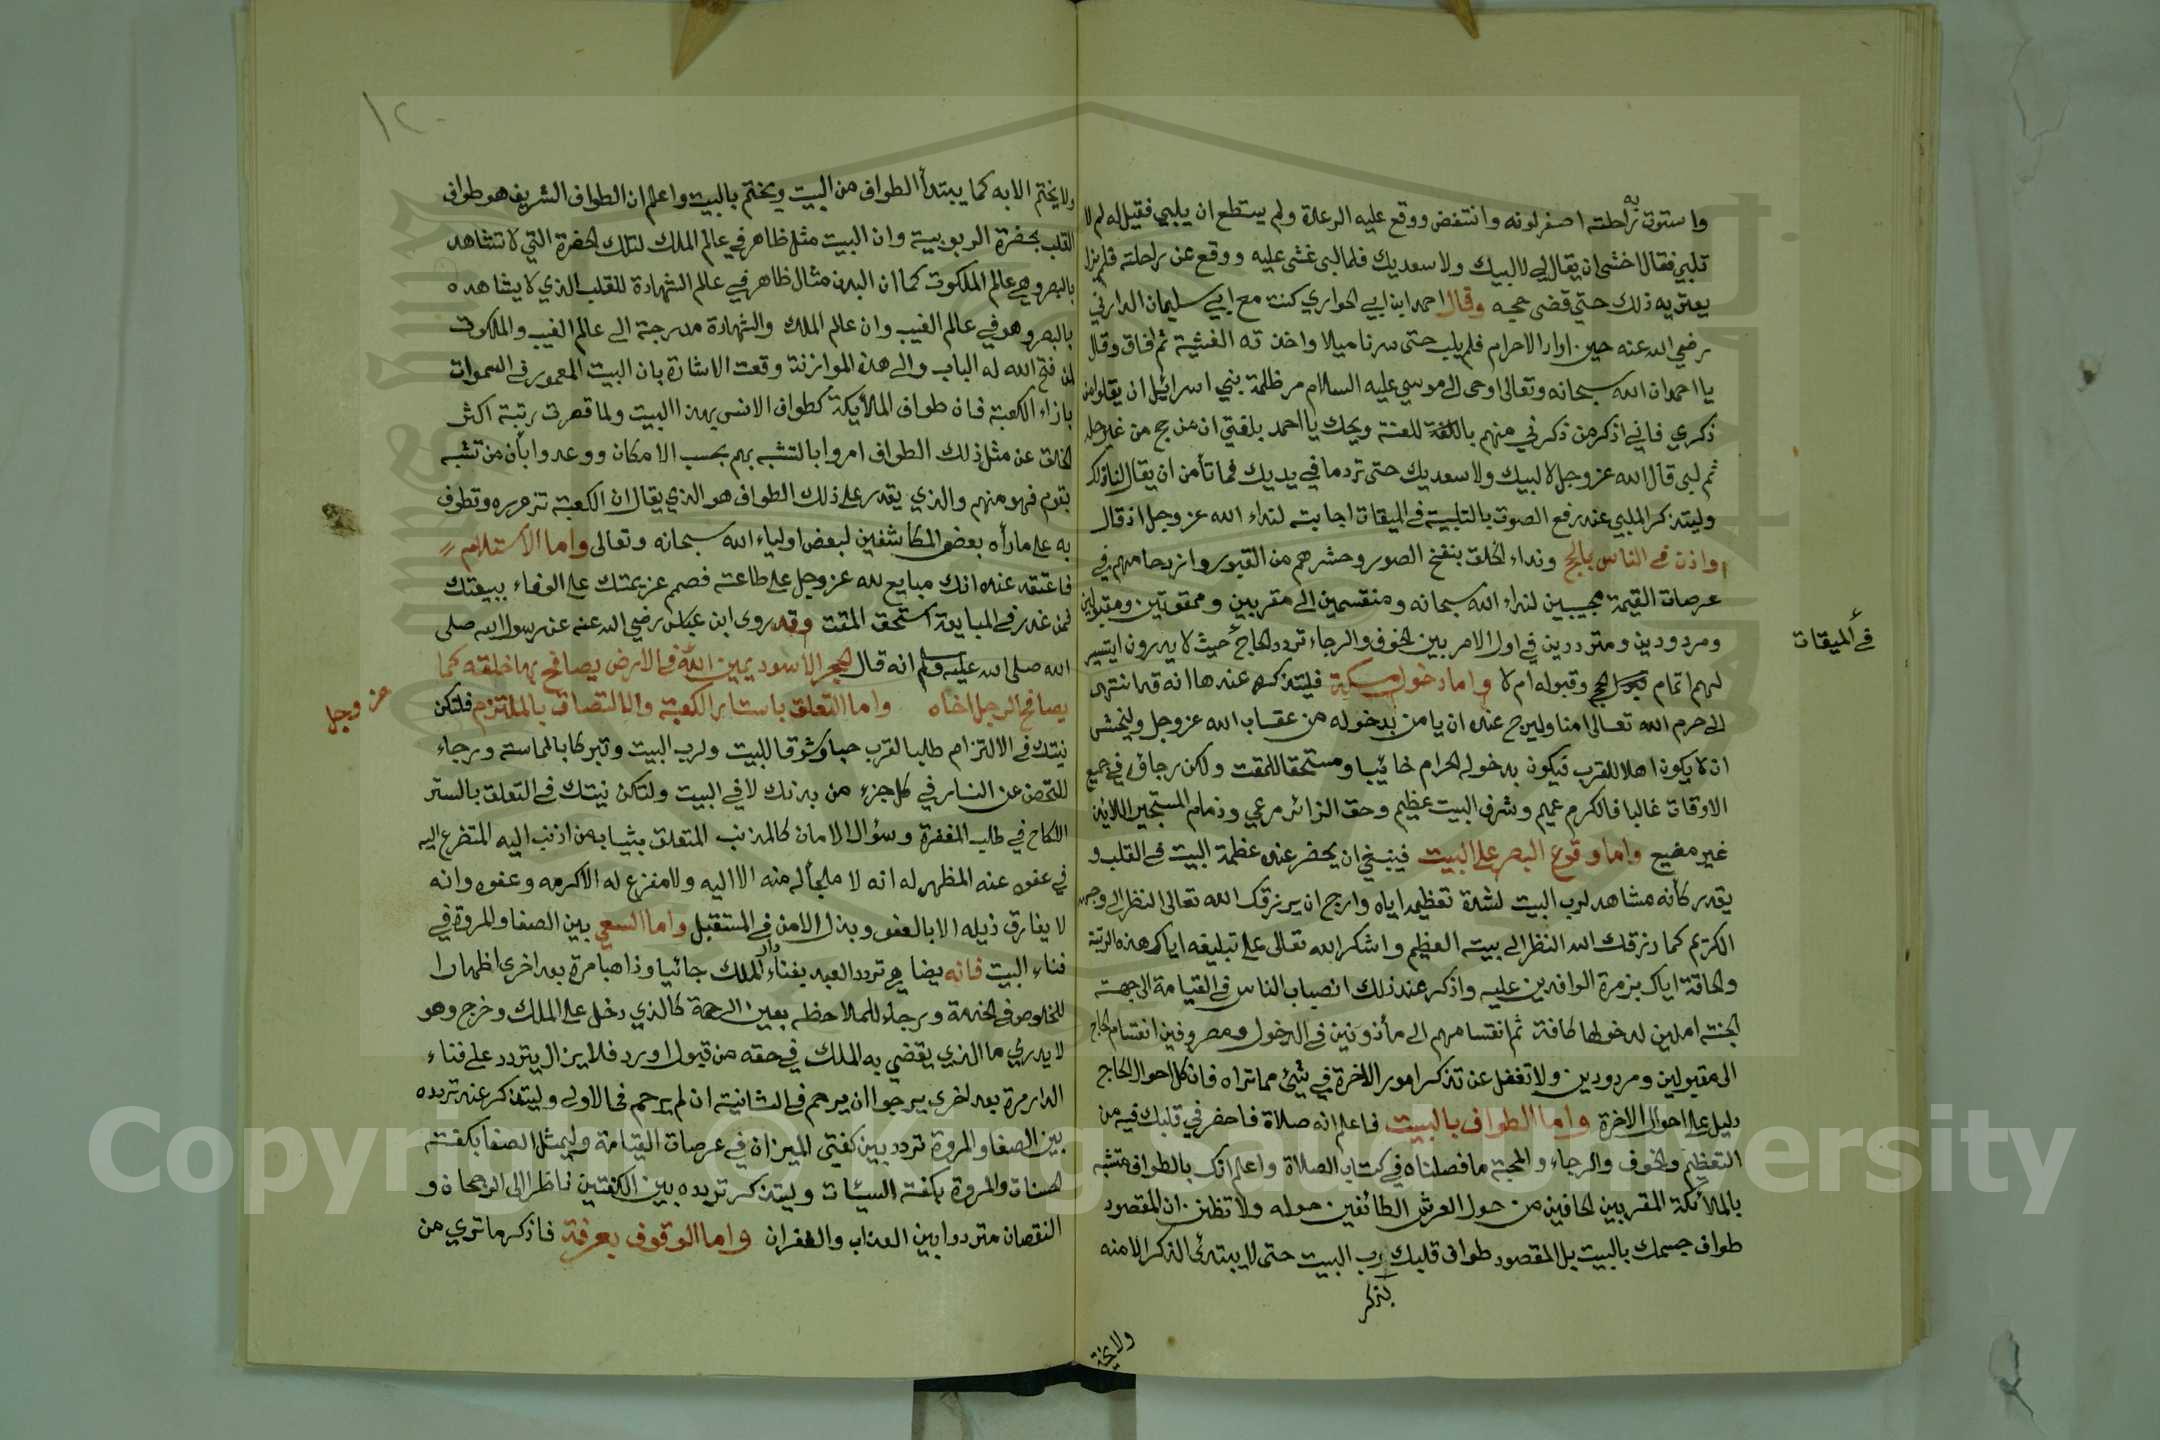 واستوت به راحلته اصفر لونه وانتفض ووقع عليه الرعدة ولم يستطع ان يلبي فقيل له لم لا
تلبي فقال اخشى ان يقال لي لا لبيك ولا سعديك فلما لبى غشي عليه ووقع عن راحلته فلم يزل
يعتريه ذلك حتي قضى حجه وقال احمد ابن ابي الحواري كنت مع ابي سليمان الداراني
رضي الله عنه حين اراد الاحرام فلم يلب حتى سرنا ميلا واخذته الغشية ثم افاق وقال
يا احمد ان الله سبحانه وتعالى اوحى الى موسي عليه السلام مر ظلمة بني اسرائيل ان يقلوا من
ذكري فاني اذكر من ذكرني منهم باللعنة ويحك يا احمد بلغني ان من حج من غير حله
ثم لبى قال الله عز وجل لا لبيك ولا سعديك حتى ترد ما في يديك فما تأمن ان يقال لنا ذلك
وليتذكر الملبي عند رفع الصوت بالتلبية في الميقات اجابته لنداء الله عز وجل اذ قال
واذن في الناس بالحج ونداء الخلق بنفخ الصور وحشرهم من القبور وازدحامهم في
عرصات القيمة مجيبين لنداء الله سبحانه ومنقسمين الى مقربين وممقوتين ومقبولين
ومردودين ومترددين في اول الامر بين الخوف والرجاء تردد الحاج حيث لا يدرون ايتيسر
في الميقات
لهم اتمام الحج وقبوله ام لا واما دخول مكة فليتذكر عندها انه قد انتهى
الى حرم الله تعالى امنا وليرج عنده ان يامن بدخوله من عقاب الله عز وجل وليخشى
ان لا يكون اهلا للقرب فيكون بدخوله الحرام خائبا ومستحقا للمقت ولكن رجاؤه في جميع
الاوقات غالبا فالكرم عميم وشرف البيت عظيم وحق الزائر مرعي وذمام المستجير اللائذ
غير مضيع واما وقوع البصر على البيت فينبغي ان يحضر عنده عظمة البيت في القلب و
يقدر كأنه مشاهد لرب البيت لشدة تعظيمه اياه وارج ان يرزقك الله تعالى النظر الى وجهه
الكريم كما رزقك الله النظر الى بيته العظيم واشكر الله تعالى على تبليغه اياك هذه الرتبة
والحاقه اياك بزمرة الوافدين عليه واذكر عند ذلك انصباب الناس في القيامة الى جهة
الجنة املين لدخولها كافة ثم انقسامهم الى مأذونين في الدخول ومصروفين انقسام الحاج
الى مقبولين ومردودين ولا تغفل عن تذكر امور الاخرة في شئ مما تراه فان كل احوال الحاج
دليل على احوال الاخرة واما الطواف بالبيت فاعلم انه صلاة فاحضر في قلبك فيه من
التعظيم والخوف والرجاء والمحبة ما فصلناه في كتاب الصلاة واعلم انك بالطواف متشبه
بالملائكة المقربين الحافين من حول العرش الطائفين حوله ولا تظنن ان المقصود
طواف جسمك بالبيت بل المقصود طواف قلبك بذكر رب البيت حتى لا يبتدئ الذكر الا منه
ولا يختم
١٢٠
ولا يختم الا به كما يبتدأ الطواف من البيت ويختم بالبيت واعلم ان الطواف الشريف هو طواف
القلب بحضرة الربوبية وان البيت مثل ظاهر في عالم الملك لتلك الحضرة التي لا تشاهد
بالبصر وهي عالم الملكوت كما ان البدن مثال ظاهر في عالم الشهادة للقلب الذي لا يشاهده
بالبصر وهو في عالم الغيب وان عالم الملك والشهادة مدرجة الى عالم الغيب والملكوت
لمن فتح الله له الباب والى هذه الموازنة وقعت الاشارة بان البيت المعمور في السموات
بازاء الكعبة فان طواف الملائكة كطواف الانس بهذا البيت ولما قصرت رتبة اكثر
الخلق عن مثل ذلك الطواف امروا بالتشبه بهم بحسب الامكان ووعدوا بأن من تشبه
بقوم فهو منهم والذي يقدر على ذلك الطواف هو الذي يقال ان الكعبة تزوره وتطوف
به على ما رأه بعض المكاشفين لبعض اولياء الله سبحانه وتعالى واما الاستلام
فاعتقد عنده انك مبايع لله عز وجل على طاعته فصمم عزيمتك على الوفاء ببيعتك
فمن غدر في المبايعة استحق المقت وقد روى ابن عباس رضي الله عنه عن رسول الله صلى
الله صلى الله عليه وسلم انه قال الحجر الاسود يمين الله في الارض يصافح بها خلقه كما
عز وجل
يصافح الرجل اخاه واما التعلق باستار الكعبة والالتصاق بالملتزم فلتكن
نيتك في الالتزام طلب القرب حبا وشوقا للبيت ولرب البيت وتبركا بالمماسة ورجاء
للتحصن عن النار في كل جزء من بدنك لا في البيت ولتكن نيتك في التعلق بالستر
الالحاح في طلب المغفرة وسؤال الامان كالمذنب المتعلق بثياب من اذنب اليه المتضرع اليه
في عفوه عنه المظهر له انه لا ملجأ له منه الا اليه ولا مفزع له الا كرمه وعفوه وانه
لا يفارق ذيله الا بالعفو وبذل الامن في المستقبل واما السعي بين الصفا والمروة في
فناء البيت فانه يضاهي تردد العبد بفناء دار الملك جائيا وذاهبا مرة بعد اخرى اظهارا
للخلوص في الخدمة ورجاء للملاحظة بعين الرحمة كالذي دخل على الملك وخرج وهو
لا يدري ما الذي يقضي به الملك في حقه من قبول او رد فلا يزال يتردد على فناء
الدار مرة بعد اخرى يرجوا ان يرحم في الثانية ان لم يرحم في الاولى وليتذكر عند تردده
بين الصفا والمروة تردده بين كفتي الميزان في عرصات القيامة وليمثل الصفا بكفة
الحسنات والمروة بكفة السيئات وليتذكر تردده بين الكفتين ناظرا الى الرجحان و
النقصان مترددا بين العذاب والغفران واما الوقوف بعرفة فاذكر ما ترى من
Copyright © King Saud University